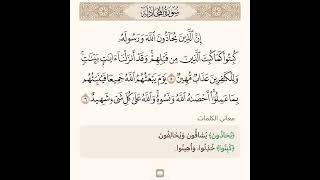 سُورَةُ المُجَادلَةِ
إِنَّ ٱلَّذِينَ يُحَآدُّونَ ٱللَّهَ وَرَسُولَهُۥ
كُبِتُوا۟ كَمَا كُبِتَ ٱلَّذِينَ مِن قَبْلِهِمْ ۚ وَقَدْ أَنزَلْنَآ ءَايَـٰتٍۭ بَيِّنَـٰتٍ ۚ
وَلِلْكَـٰفِرِينَ عَذَابٌ مُّهِينٌ ٥ يَوْمَ يَبْعَثُهُمُ ٱللَّهُ جَمِيعًا فَيُنَبِّئُهُم
بِمَا عَمِلُوٓا۟ ۚ أَحْصَىٰهُ ٱللَّهُ وَنَسُوهُ ۚ وَٱللَّهُ عَلَىٰ كُلِّ شَىْءٍ شَهِيدٌ ٦
معاني الكلمات
﴿يُحَآدُّونَ﴾ يُشَاقُّونَ وَيُخَالِفُونَ.
﴿كُبِتُوا﴾ خُذِلُوا، وَأُهِينُوا.